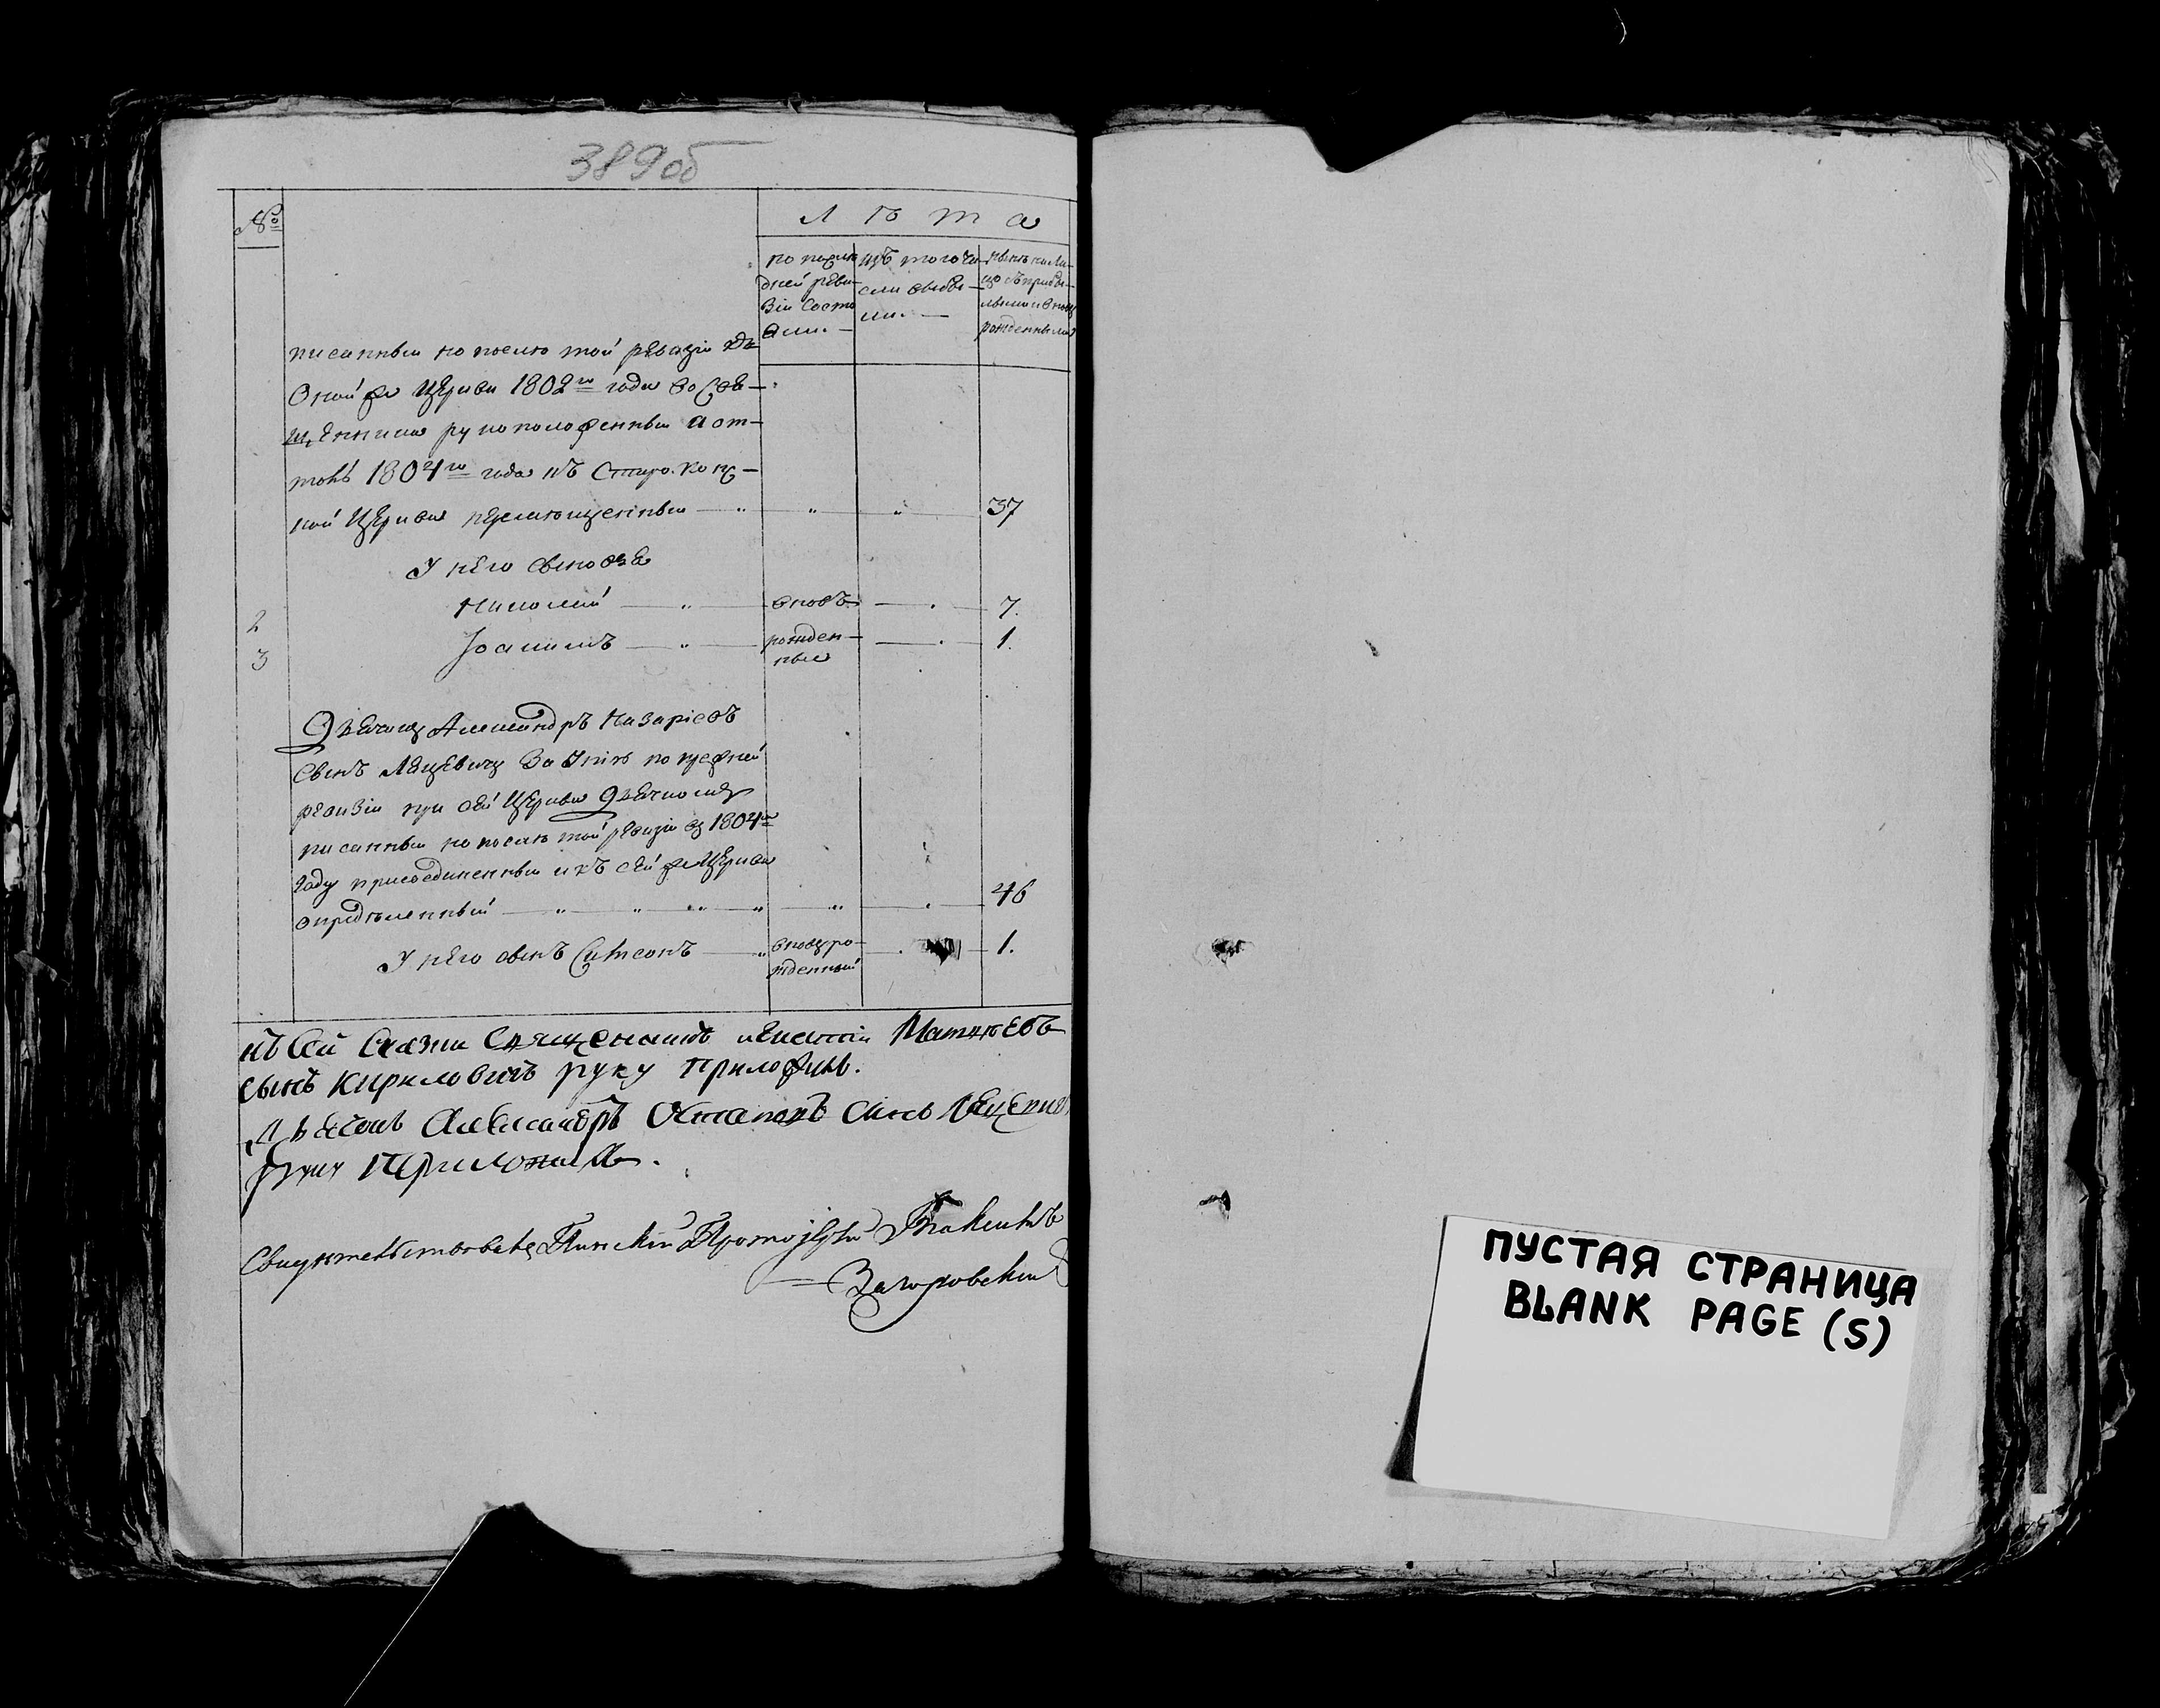 389об
№
Лѣта
по послѣ-
дней реви-
зіи состо
яли.
изъ того чи-
сла выбы-
ли.
нынѣ на ли-
цо съ прибы-
лыми и вновь
рожденными
писанный но послѣ той ревизіи къ
оной же Церкви 1802го года во свя-
щенника рукоположенный а от-
толь 1804го года къ
ной Церкви перемѣщенный 37
У него сыновья
2 Николай вновь 7.
3 Іоаннъ рожден-
ные 1.
Дьячокъ Александръ Назаріевъ
сынъ Лецевичъ въ Уніи по прежней
ревизіи при сей Церкви Дьячкомъ
писанный но послѣ той ревизіи въ 1804мъ
году присоединенный и къ сей же Церкви
опредѣленный 46
У него сынъ Симеонъ вновь ро-
жденный 1.
къ сей сказки Священникъ Матѳѣевъ
сынъ Кириловичъ руку приложилъ.
Дьячокъ Александръ синъ
руку приложилъ.
Свидѣтельствовалъ Пинскій Протоіерей
Загоровскій
ПУСТАЯ СТРАНИЦА
BLANK PAGE (S)